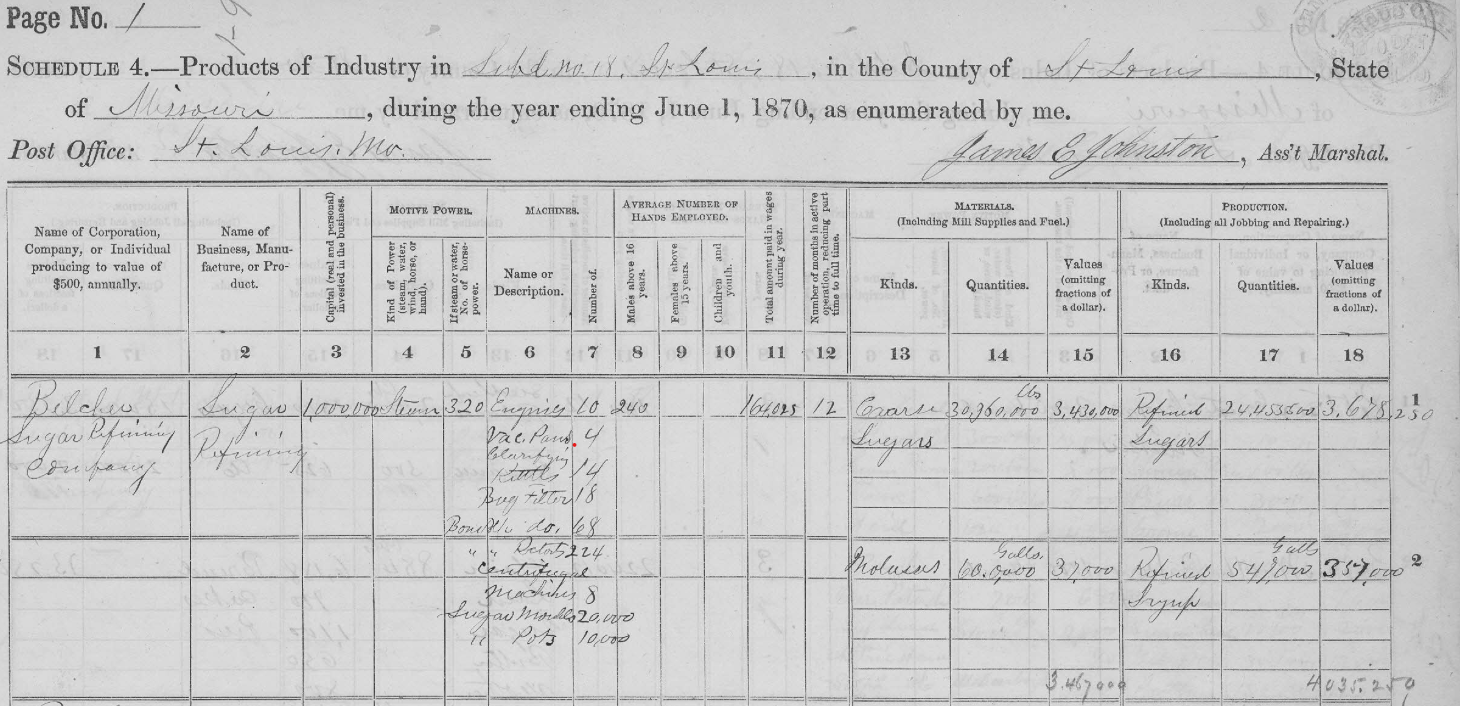 Page No. 1
SCHEDULE 4.—Products of Industry in Subd. no. 18, St Louis, in the County of St Louis, State
of Missouri, during the year ending June 1, 1870, as enumerated by me.
Post Office: St. Louis. Mo. James E Johnston, Ass't Marshal.
Name of Corporation, Company, or Individual producing to value of $500, annually.
Name of Business, Manufacture, or Product.
Capital (real and personal) invested in the business.
MOTIVE POWER.
Kind of Power (steam, water, wind, horse, or hand).
If steam or water, No. of horse-power.
MACHINES.
Name or Description.
Number of.
AVERAGE NUMBER OF HANDS EMPLOYED.
Males above 16 years.
Females above 15 years.
Children and youth.
Total amount paid in wages during year.
Number of months in active operation, reducing part time to full time.
MATERIALS.
(Including Mill Supplies and Fuel.)
Kinds.
Quantities.
Values (omitting fractions of a dollar).
PRODUCTION.
(Including all Jobbing and Repairing.)
Kinds.
Quantities.
Values (omitting fractions of a dollar).
1 2 3 4 5 6 7 8 9 10 11 12 13 14 15 16 17 18
lbs
Belcher Sugar 1,000,000 Steam 320 Engines 10 240 164,025 12 Coarse 30,360,000 3,430,000 Refined 24,455,500 3,678,250 1
Sugar Refining Refining Vac. Pans 4 Sugars Sugars
Company Clarifying
Kettls 14
Bag Filter 18
Bone Blk do. 68
" " Retorts 224 Galls. Galls
Centrifugal Molasses 60,000 37,000 Refined 541,000 357,000 2
Machines 8 Syrup
Sugar Moulds 20,000
" Pots 10,000
3.467000 4035.250